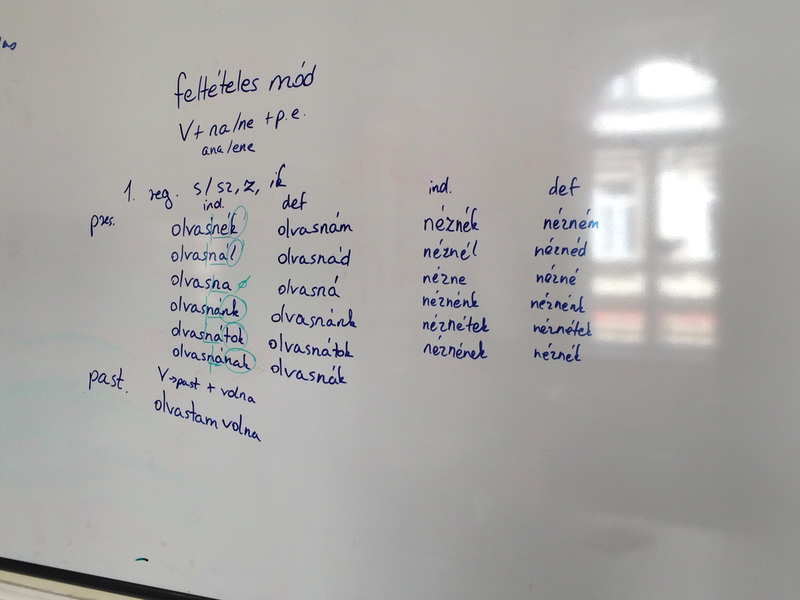 feltételes mód
V + na/ne + p.e.
ana/ene
1. reg. s/sz, z, ik
ind. def ind. def
pres. olvasnék olvasnám néznék nézném
olvasnál olvasnád néznél néznéd
olvasna ∅ olvasná nézne nézné
olvasnánk olvasnánk néznénk néznénk
olvasnátok olvasnátok néznétek néznétek
olvasnának olvasnák néznének néznék
past. V→past + volna
olvastam volna